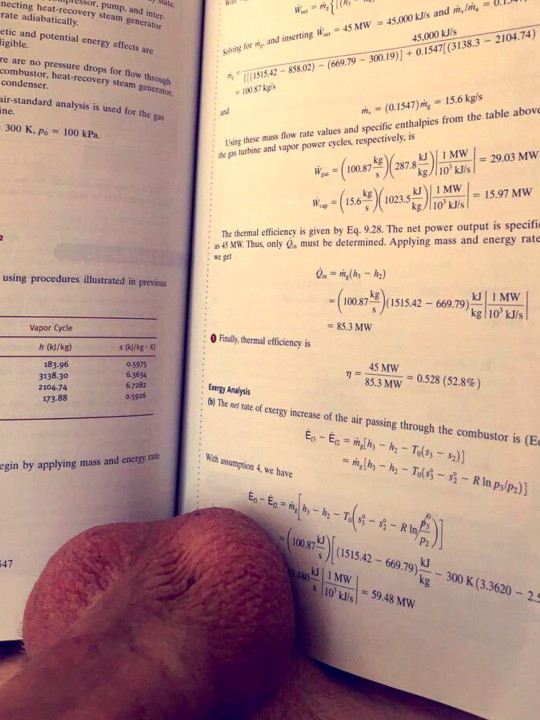 ompressor, pump, and inter-
necting heat-recovery steam generator
rate adiabatically.
etic and potential energy effects are
ligible.
re are no pressure drops for flow through
combustor, heat-recovery steam generator,
condenser.
air-standard analysis is used for the gas
ine.
300 K, p₀ = 100 kPa.
using procedures illustrated in previous
Vapor Cycle
h (kJ/kg) s (kJ/kg · K)
183.96 0.5975
3138.30 6.3634
2104.74 6.7282
173.88 0.5926
egin by applying mass and energy rate
547
Solving for ṁg, and inserting Ẇnet = 45 MW = 45,000 kJ/s and ṁv/ṁg =
45,000 kJ/s
ṁg = {[(1515.42 − 858.02) − (669.79 − 300.19)] + 0.1547[(3138.3 − 2104.74)
= 100.87 kg/s
and
ṁv = (0.1547)ṁg = 15.6 kg/s
Using these mass flow rate values and specific enthalpies from the table above
the gas turbine and vapor power cycles, respectively, is
Ẇgas = (100.87 kg/s)(287.8 kJ/kg)|1 MW/10³ kJ/s| = 29.03 MW
Ẇvap = (15.6 kg/s)(1023.5 kJ/kg)|1 MW/10³ kJ/s| = 15.97 MW
The thermal efficiency is given by Eq. 9.28. The net power output is specifi
as 45 MW. Thus, only Q̇in must be determined. Applying mass and energy rate
we get
Q̇in = ṁg(h₃ − h₂)
= (100.87 kg/s)(1515.42 − 669.79) kJ/kg |1 MW/10³ kJ/s|
= 85.3 MW
❶ Finally, thermal efficiency is
η = 45 MW/85.3 MW = 0.528 (52.8%)
Exergy Analysis
(b) The net rate of exergy increase of the air passing through the combustor is (Eq
Ėf3 − Ėf2 = ṁg[h₃ − h₂ − T₀(s₃ − s₂)]
= ṁg[h₃ − h₂ − T₀(s°₃ − s°₂ − R ln p₃/p₂)]
With assumption 4, we have
Ėf3 − Ėf2 = ṁg[h₃ − h₂ − T₀(s°₃ − s°₂ − R ln p₃/p₂ 0)]
= (100.87 kJ/s)[(1515.42 − 669.79) kJ/kg − 300 K(3.3620 − 2.5
kJ/s |1 MW/10³ kJ/s| = 59.48 MW